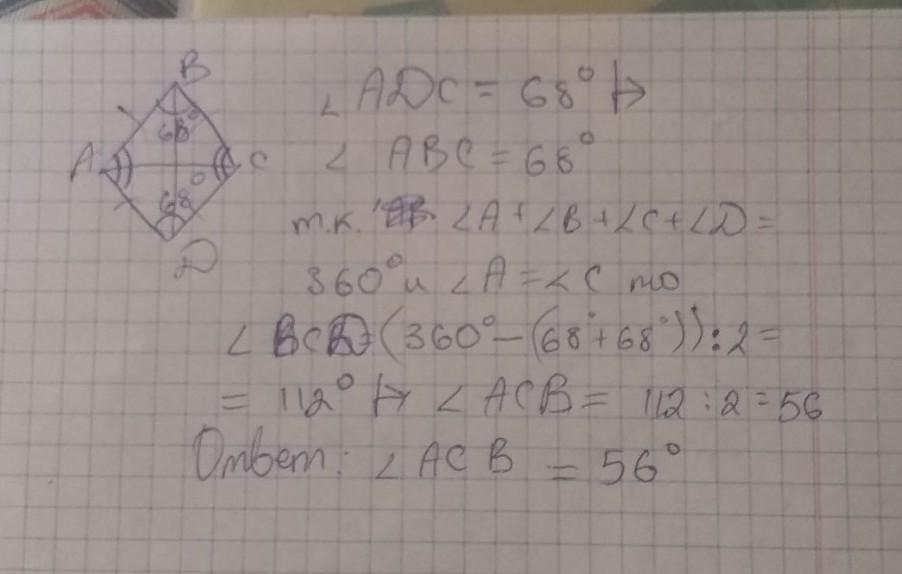 B
68°
A
C
O
68°
D
∠ADC = 68° ⊢>
∠ ABC = 68°
т.к. ∠A+∠B+∠C+∠D=
360° и ∠A=∠C то
∠ BCD=(360°-(68°+68°)):2=
= 112° ⊢> ∠ACB= 112:2=56
Ответ: ∠ACB = 56°